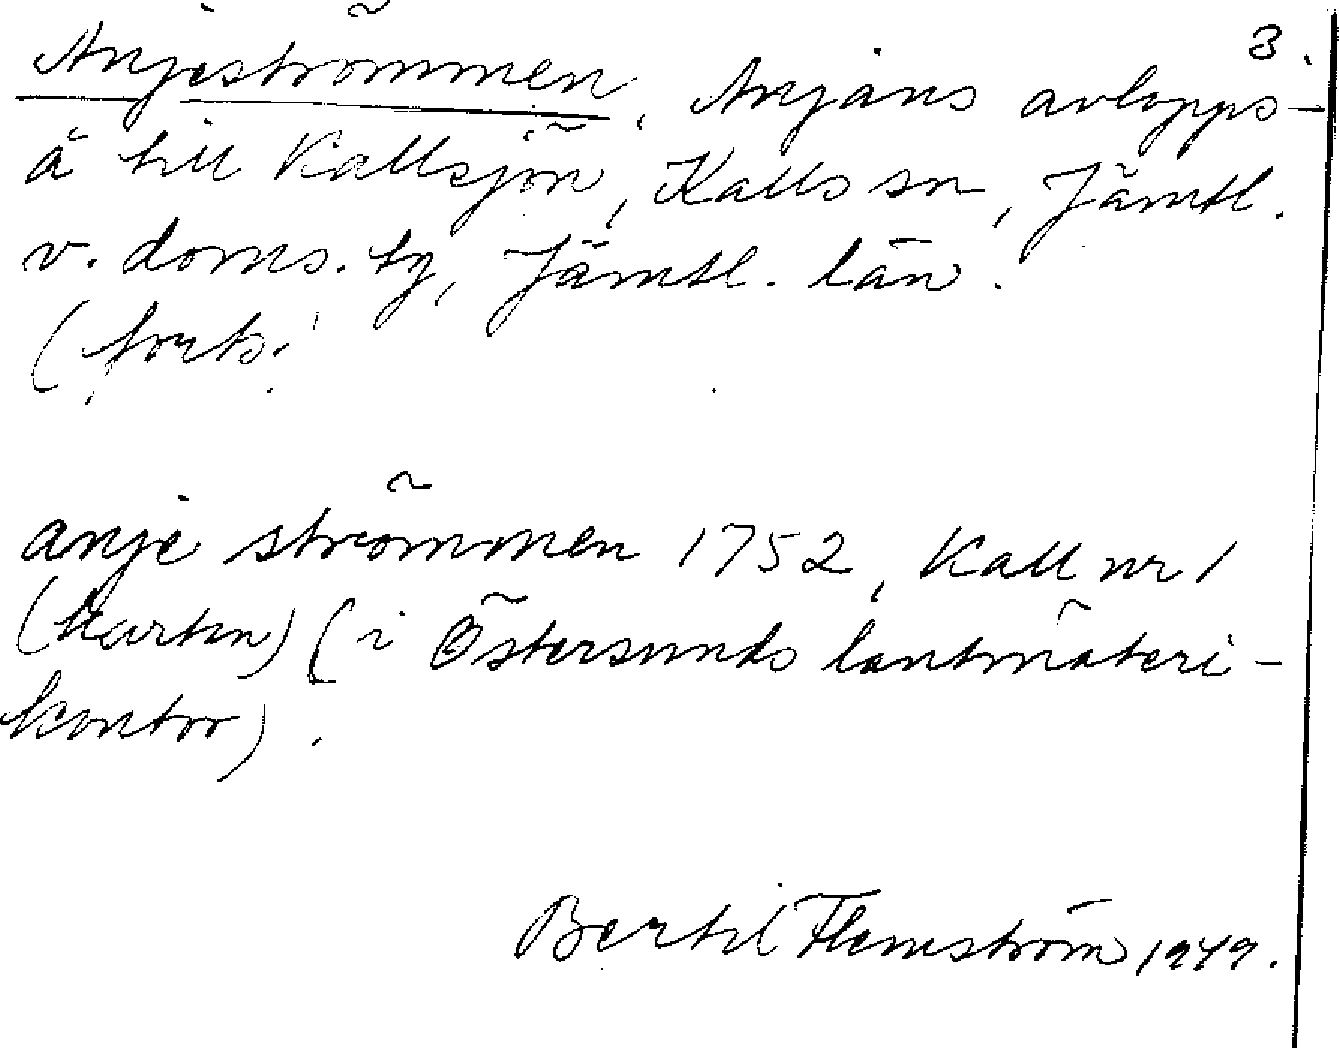 3.
Anjeströmmen, Anjans avlopps-
å till Kallsjön, Kalls sn, Jämtl.
v. doms. tg, Jämtl. län.
(forts.
anje strömmen 1752, Kall nr 1
(kartan) (i Östersunds lantmäteri-
kontor).
Bertil Flemström 1949.